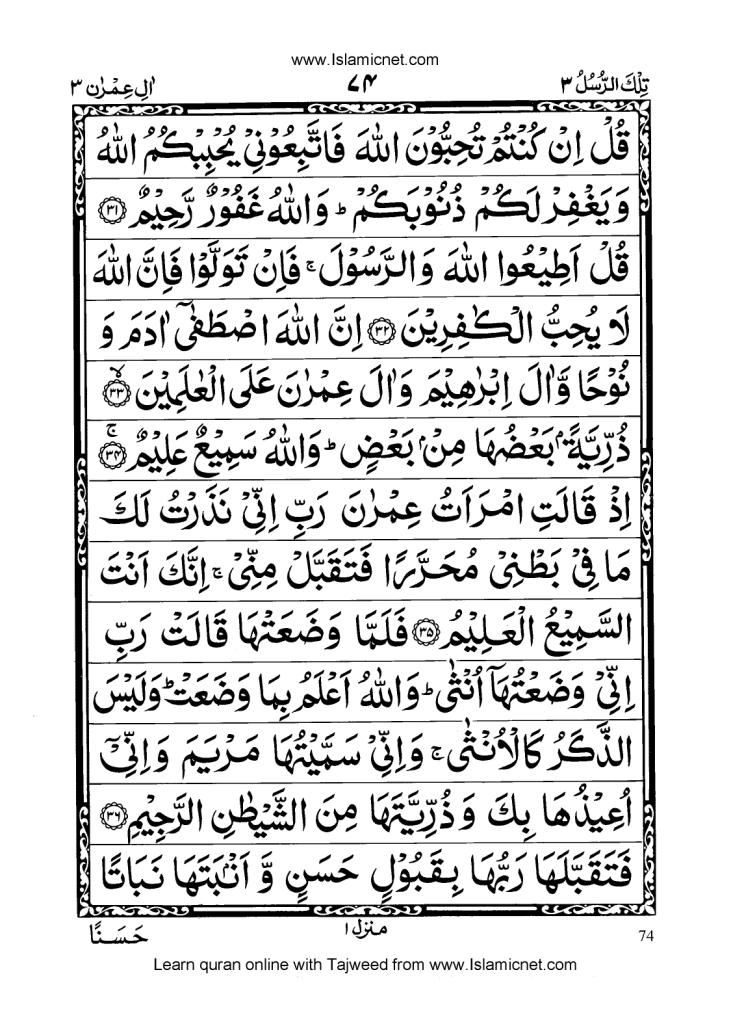 www.Islamicnet.com
تِلْكَ الرُّسُلُ ٣ ٧٤ اٰلِ عِمْرٰن ٣
قُلْ اِنْ كُنْتُمْ تُحِبُّوْنَ اللّٰهَ فَاتَّبِعُوْنِيْ يُحْبِبْكُمُ اللّٰهُ
وَيَغْفِرْ لَكُمْ ذُنُوْبَكُمْ ؕ وَاللّٰهُ غَفُوْرٌ رَّحِيْمٌ ۝٣١
قُلْ اَطِيْعُوا اللّٰهَ وَالرَّسُوْلَ ۚ فَاِنْ تَوَلَّوْا فَاِنَّ اللّٰهَ
لَا يُحِبُّ الْكٰفِرِيْنَ ۝٣٢ اِنَّ اللّٰهَ اصْطَفٰٓى اٰدَمَ وَ
نُوْحًا وَّاٰلَ اِبْرٰهِيْمَ وَاٰلَ عِمْرٰنَ عَلَى الْعٰلَمِيْنَ ۝٣٣ۙ
ذُرِّيَّةًۢ بَعْضُهَا مِنْۢ بَعْضٍ ؕ وَاللّٰهُ سَمِيْعٌ عَلِيْمٌ ۝٣٤ۚ
اِذْ قَالَتِ امْرَاَتُ عِمْرٰنَ رَبِّ اِنِّيْ نَذَرْتُ لَكَ
مَا فِيْ بَطْنِيْ مُحَرَّرًا فَتَقَبَّلْ مِنِّيْ ۚ اِنَّكَ اَنْتَ
السَّمِيْعُ الْعَلِيْمُ ۝٣٥ فَلَمَّا وَضَعَتْهَا قَالَتْ رَبِّ
اِنِّيْ وَضَعْتُهَاۤ اُنْثٰى ؕ وَاللّٰهُ اَعْلَمُ بِمَا وَضَعَتْ ؕ وَلَيْسَ
الذَّكَرُ كَالْاُنْثٰى ۚ وَاِنِّيْ سَمَّيْتُهَا مَرْيَمَ وَاِنِّيْۤ
اُعِيْذُهَا بِكَ وَذُرِّيَّتَهَا مِنَ الشَّيْطٰنِ الرَّجِيْمِ ۝٣٦
فَتَقَبَّلَهَا رَبُّهَا بِقَبُوْلٍ حَسَنٍ وَّاَنْۢبَتَهَا نَبَاتًا
منزل ١ حَسَنًا
74
Learn quran online with Tajweed from www.Islamicnet.com